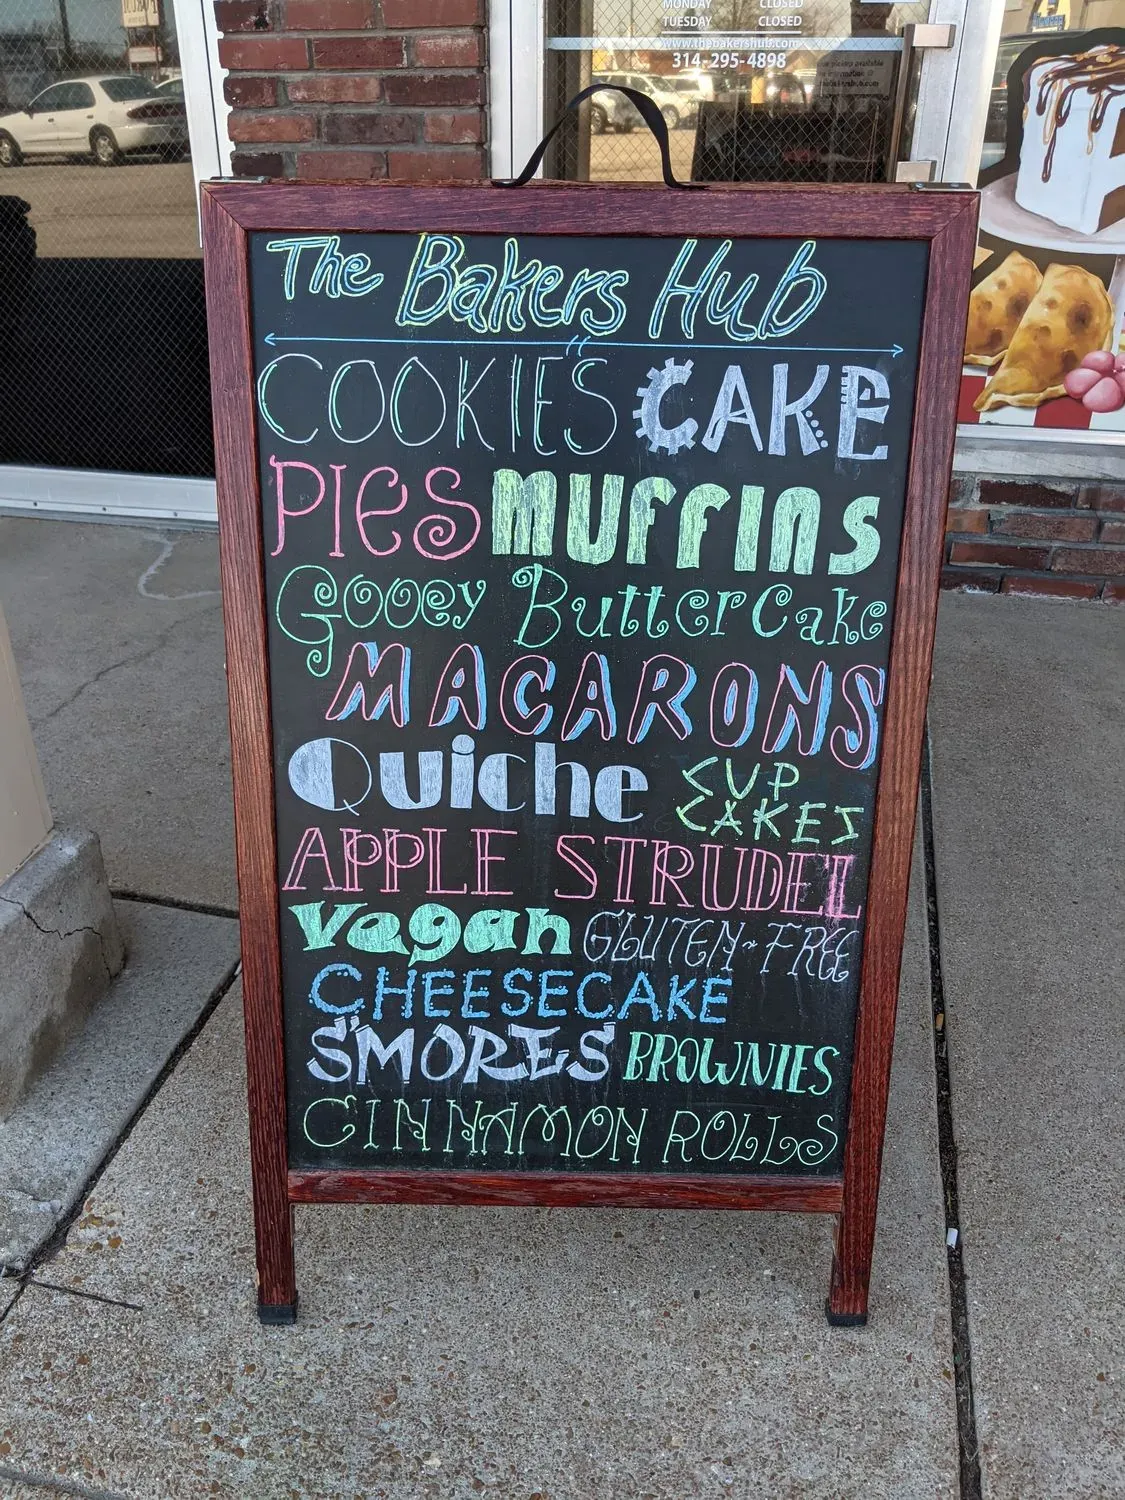 MONDAY CLOSED
TUESDAY CLOSED
www.thebakershub.com
314-295-4898
The Bakers Hub
COOKIES CAKE
PIES MUFFINS
Gooey Butter Cake
MACARONS
Quiche CUP CAKES
APPLE STRUDEL
Vagan GLUTEN-FREE
CHEESECAKE
S'MORES BROWNIES
CINNAMON ROLLS